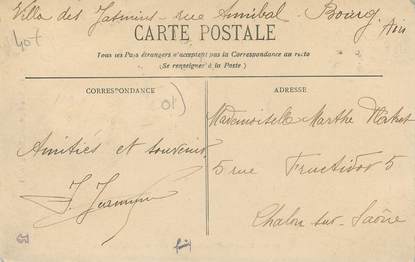 Villa des Jasmins - rue Annibal - Bourg Ain
40f
CARTE POSTALE
Tous les Pays étrangers n'acceptent pas la Correspondance au recto
(Se renseigner à la Poste)
CORRESPONDANCE
ADRESSE
01
Mademoiselle Marthe
Amitiés et souvenir.
5 rue Fructidor 5
Chalon-sur-Saône